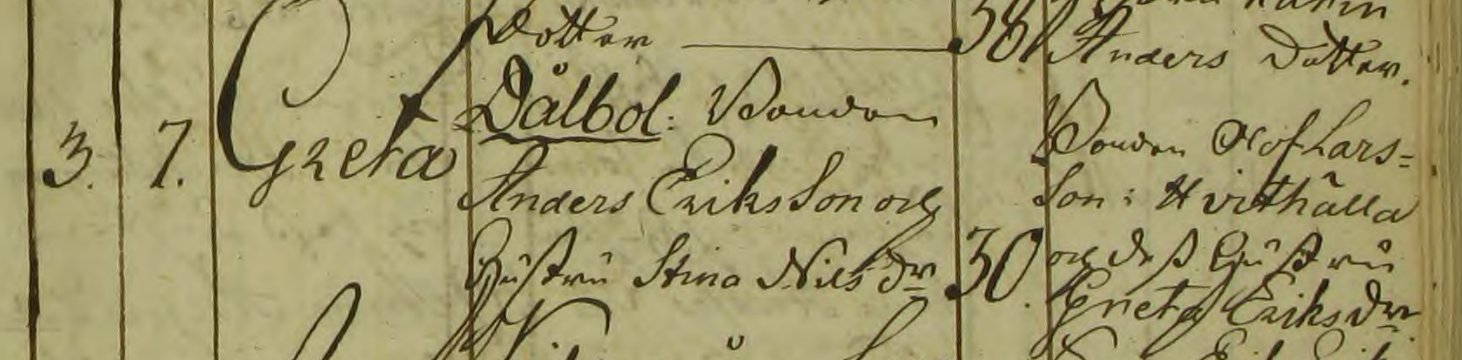 Dotter 38
Anders Dotter.
3. 7. Greta
Dålbol: Bonden
Anders Eriks Son och
Hustru Stina Nils dr 30.
Bonden Olof Lars=
Son: Hvithälla
och dess Hustru
Greta Eriks dr